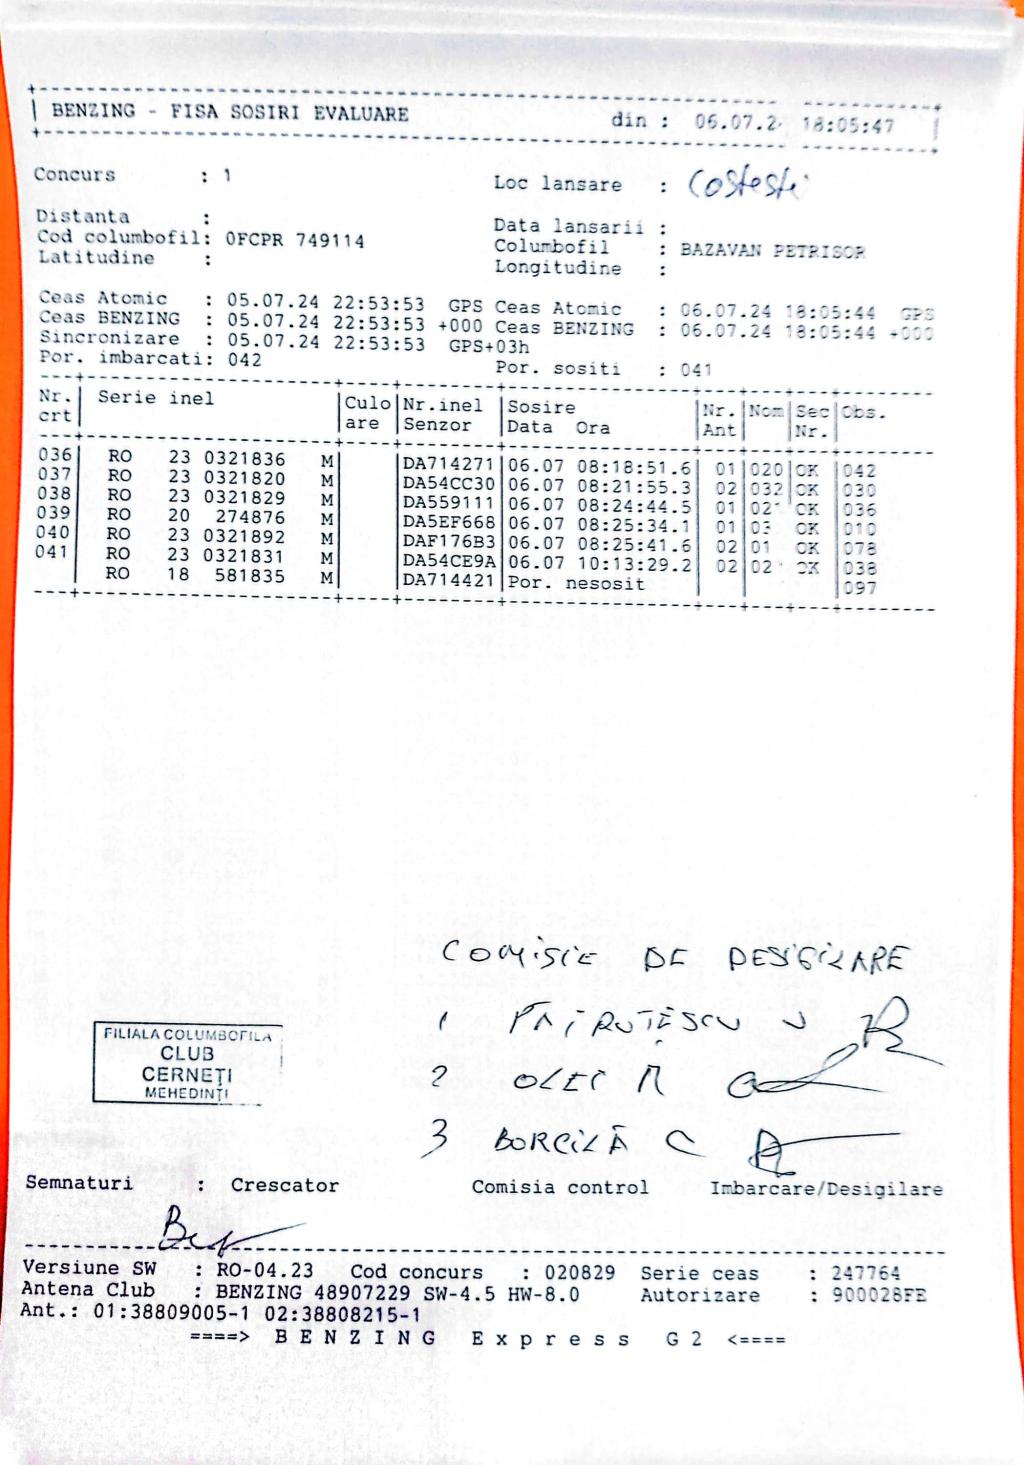 BENZING - FISA SOSIRI EVALUARE din : 06.07.2 18:05:47
Concurs : 1 Loc lansare : Costesti
Distanta : Data lansarii :
Cod columbofil: 0FCPR 749114 Columbofil : BAZAVAN PETRISOR
Latitudine : Longitudine :
Ceas Atomic : 05.07.24 22:53:53 GPS Ceas Atomic : 06.07.24 18:05:44 GPS
Ceas BENZING : 05.07.24 22:53:53 +000 Ceas BENZING : 06.07.24 18:05:44 +000
Sincronizare : 05.07.24 22:53:53 GPS+03h
Por. imbarcati: 042 Por. sositi : 041
Nr. Serie inel Culo Nr.inel Sosire Nr. Nom Sec Obs.
crt are Senzor Data Ora Ant Nr.
036 RO 23 0321836 M DA714271 06.07 08:18:51.6 01 020 OK 042
037 RO 23 0321820 M DA54CC30 06.07 08:21:55.3 02 032 OK 030
038 RO 23 0321829 M DA559111 06.07 08:24:44.5 01 02 OK 036
039 RO 20 274876 M DA5EF668 06.07 08:25:34.1 01 03 OK 010
040 RO 23 0321892 M DAF176B3 06.07 08:25:41.6 02 01 OK 078
041 RO 23 0321831 M DA54CE9A 06.07 10:13:29.2 02 02 OK 038
RO 18 581835 M DA714421 Por. nesosit 097
COMISIE DE DESIGILARE
1 PĂTRUȚESCU N
2 OLEI M
3 BORCILĂ C
FILIALA COLUMBOFILA
CLUB
CERNEȚI
MEHEDINȚI
Semnaturi : Crescator Comisia control Imbarcare/Desigilare
Versiune SW : RO-04.23 Cod concurs : 020829 Serie ceas : 247764
Antena Club : BENZING 48907229 SW-4.5 HW-8.0 Autorizare : 900028FE
Ant.: 01:38809005-1 02:38808215-1
====> B E N Z I N G E x p r e s s G 2 <====